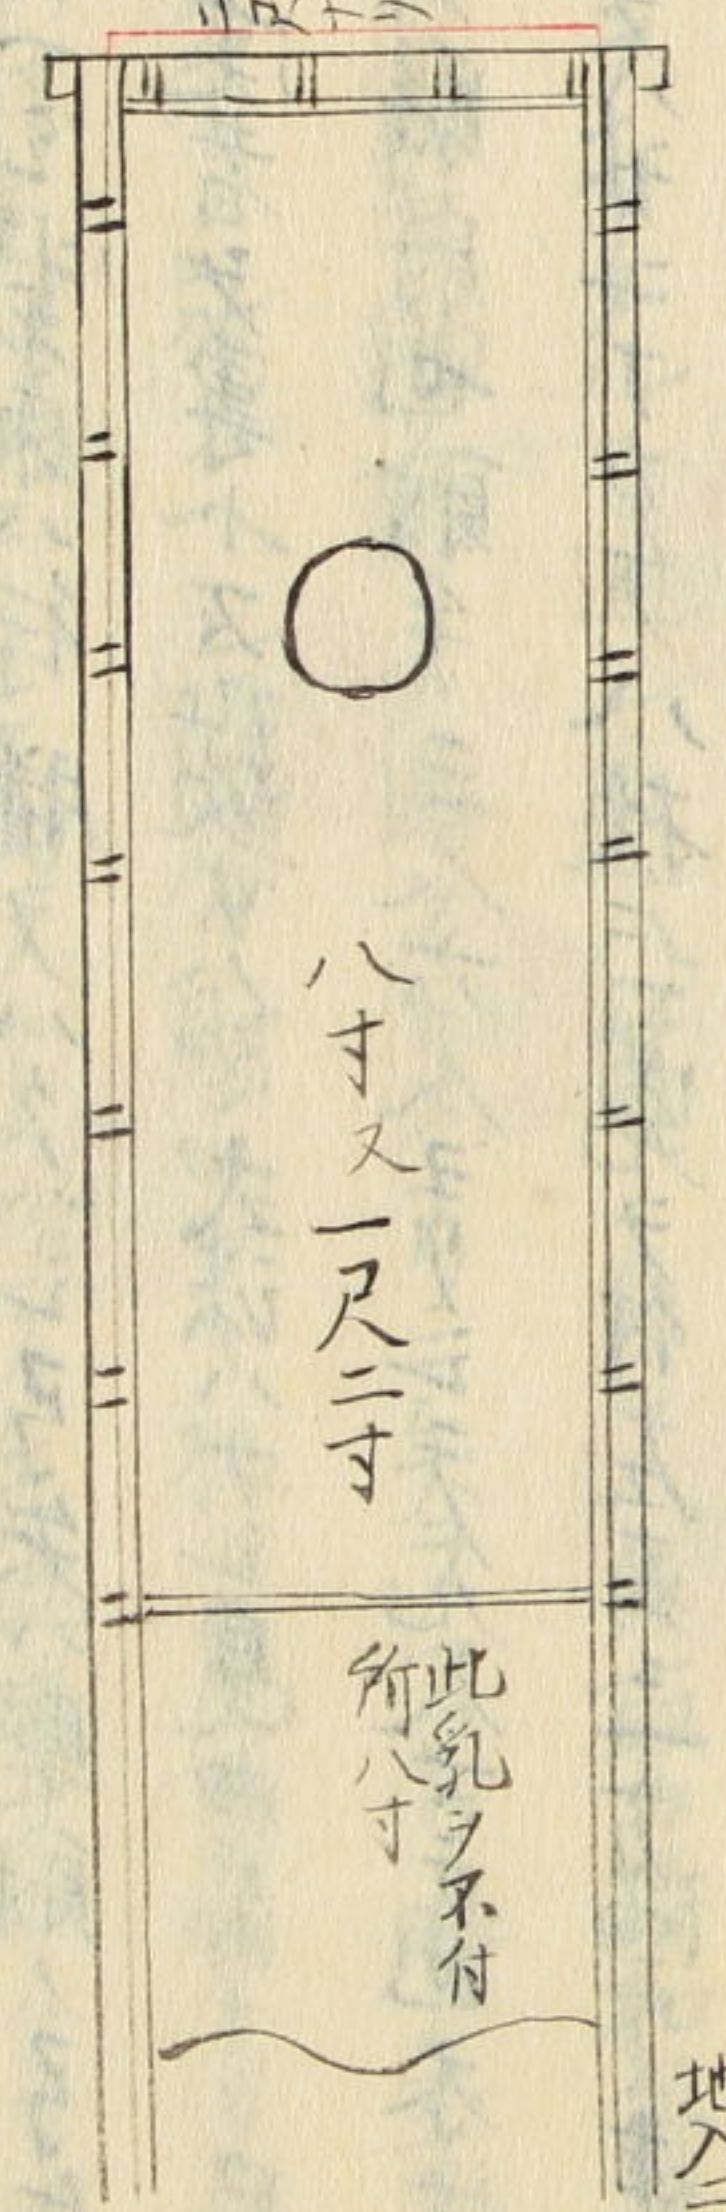 八寸又一尺二寸
此乳ヲ不付
所八寸
地入